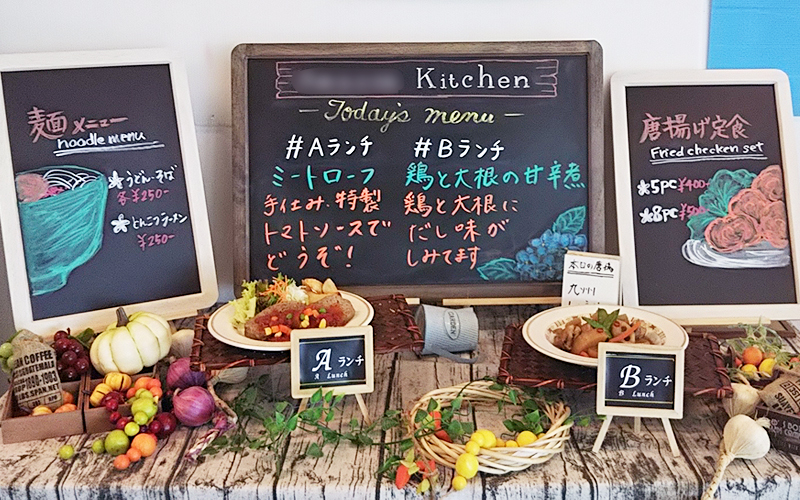 麺メニュー
noodle menu
うどん・そば
各¥250-
とんこつラーメン
¥250-
Kitchen
Today's menu
#Aランチ
ミートローフ
手仕込み、特製
トマトソースで
どうぞ!
#Bランチ
鶏と大根の甘辛煮
鶏と大根に
だし味が
しみてます
唐揚げ定食
Fried checken set
5PC ¥400-
8PC ¥500
本日の唐揚
九州
Aランチ
A Lunch
Bランチ
B Lunch
GARDEN
COFFEE